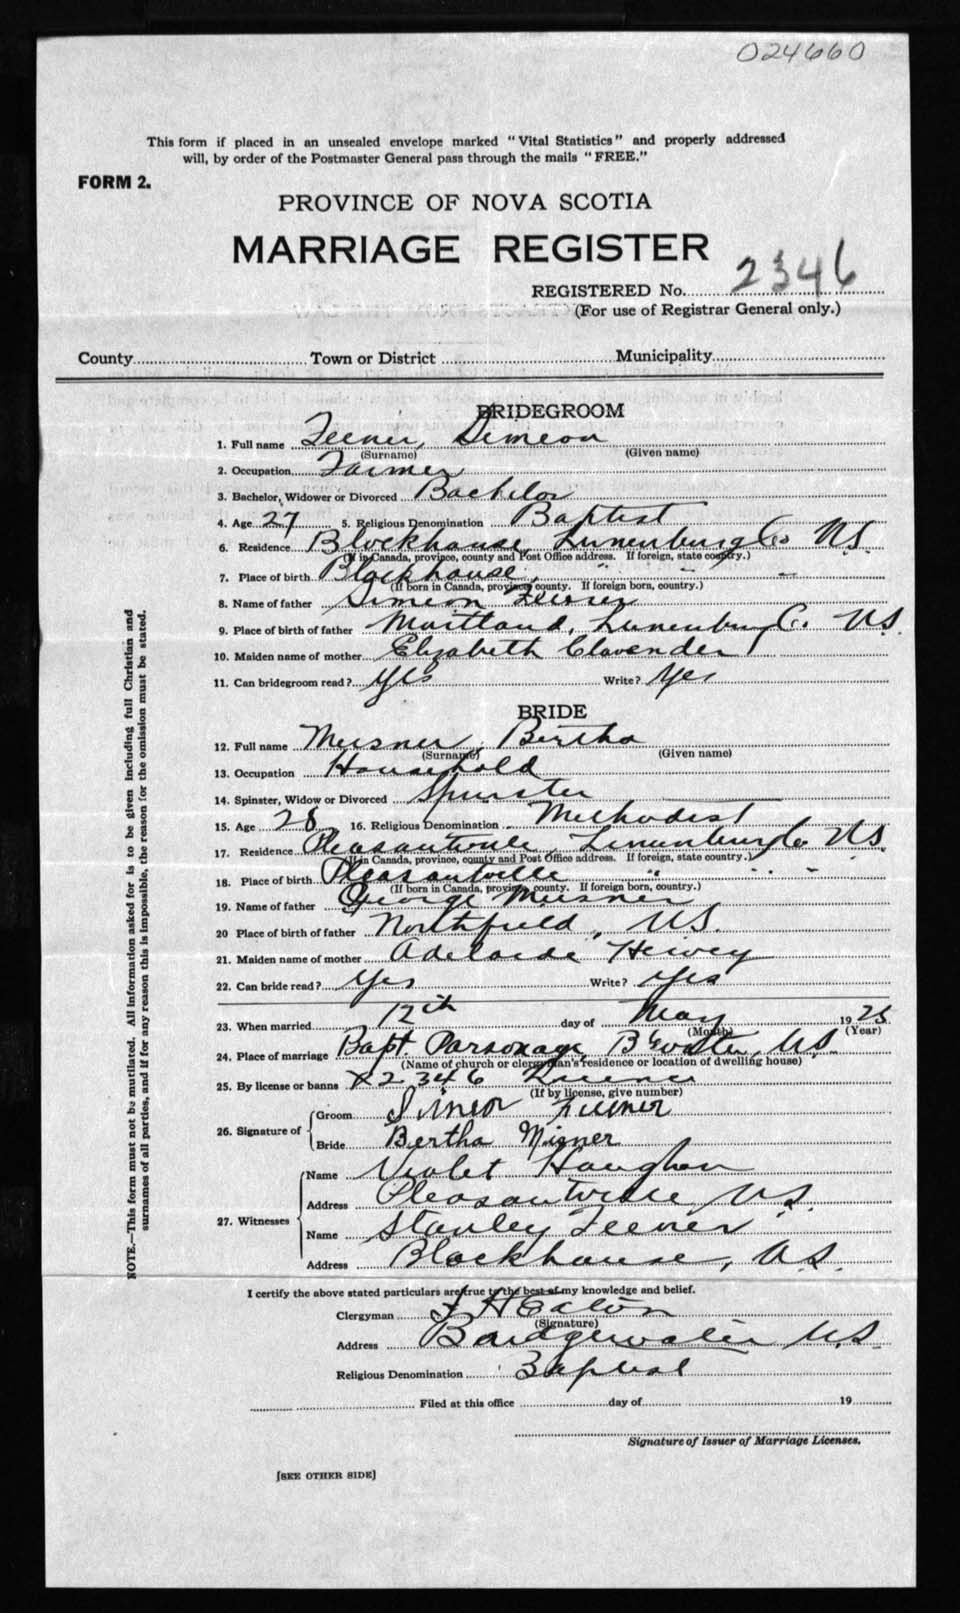 024660
This form if placed in an unsealed envelope marked "Vital Statistics" and properly addressed
will, by order of the Postmaster General pass through the mails "FREE."
FORM 2.
PROVINCE OF NOVA SCOTIA
MARRIAGE REGISTER
REGISTERED No. 2346
(For use of Registrar General only.)
County Town or District Municipality
BRIDEGROOM
1. Full name Feener, Simeon
(Surname) (Given name)
2. Occupation Farmer
3. Bachelor, Widower or Divorced Bachelor
4. Age 27 5. Religious Denomination Baptist
6. Residence Blockhouse, Lunenburg Co NS.
(If in Canada, province, county and Post Office address. If foreign, state country.)
7. Place of birth Blockhouse, " " "
(If born in Canada, province, county. If foreign born, country.)
8. Name of father Simeon Feener
9. Place of birth of father Maitland, Lunenburg C. NS.
10. Maiden name of mother Elizabeth Clavender
11. Can bridegroom read? yes Write? Yes
BRIDE
12. Full name Meisner, Bertha
(Surname) (Given name)
13. Occupation Household
14. Spinster, Widow or Divorced Spinster
15. Age 28 16. Religious Denomination Methodist
17. Residence Pleasantville, Lunenburg Co NS.
(If in Canada, province, county and Post Office address. If foreign, state country.)
18. Place of birth Pleasantville " " "
(If born in Canada, province, county. If foreign born, country.)
19. Name of father George Meisner
20 Place of birth of father Northfield, NS.
21. Maiden name of mother Adelaide Hervey
22. Can bride read? Yes Write? Yes
23. When married 12th day of May 1925
(Month) (Year)
24. Place of marriage Bapt Parsonage, B'water, NS.
(Name of church or clergyman's residence or location of dwelling house)
25. By license or banns X2346 License
(If by license, give number)
26. Signature of
Groom Simeon Feener
Bride Bertha Misner
27. Witnesses
Name Violet Haughan
Address Pleasantville NS.
Name Stanley Feener
Address Blockhouse, NS.
I certify the above stated particulars are true to the best of my knowledge and belief.
Clergyman F H Eaton
(Signature)
Address Bridgewater NS
Religious Denomination Baptist
Filed at this office day of 19
Signature of Issuer of Marriage Licenses.
[SEE OTHER SIDE]
NOTE.—This form must not be mutilated. All information asked for is to be given including full Christian and
surnames of all parties, and if for any reason this is impossible, the reason for the omission must be stated.